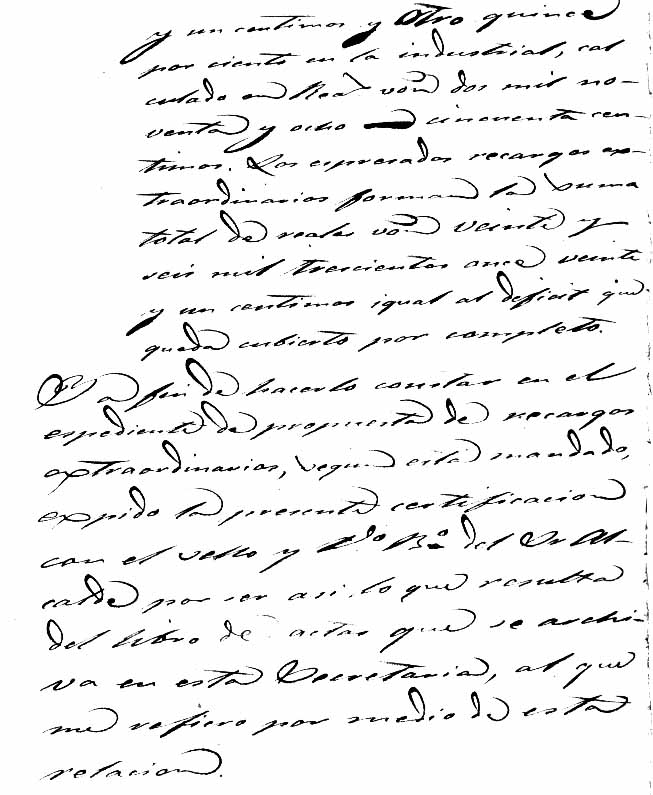 y un centimos y otro quince
por ciento en la industrial, cal
culado en Rea⁠⁠ˢ von dos mil no-
venta y ocho cincuenta cen-
timos. Los espresados recargos ex-
traordinarios forman la suma
total de reales von veinte y
seis mil trescientos once veinte
y un centimos igual al deficit que
queda cubierto por completo.
Y a fin de hacerlo constar en el
espediente de propuesta de recargos
extraordinarios, segun está mandado,
expido la presente certificacion
con el sello y Vº Bº del Sr Al-
calde por ser asi lo que resulta
del libro de actas que se archi-
va en esta Secretaria, al que
me refiero por medio de esta
relacion.